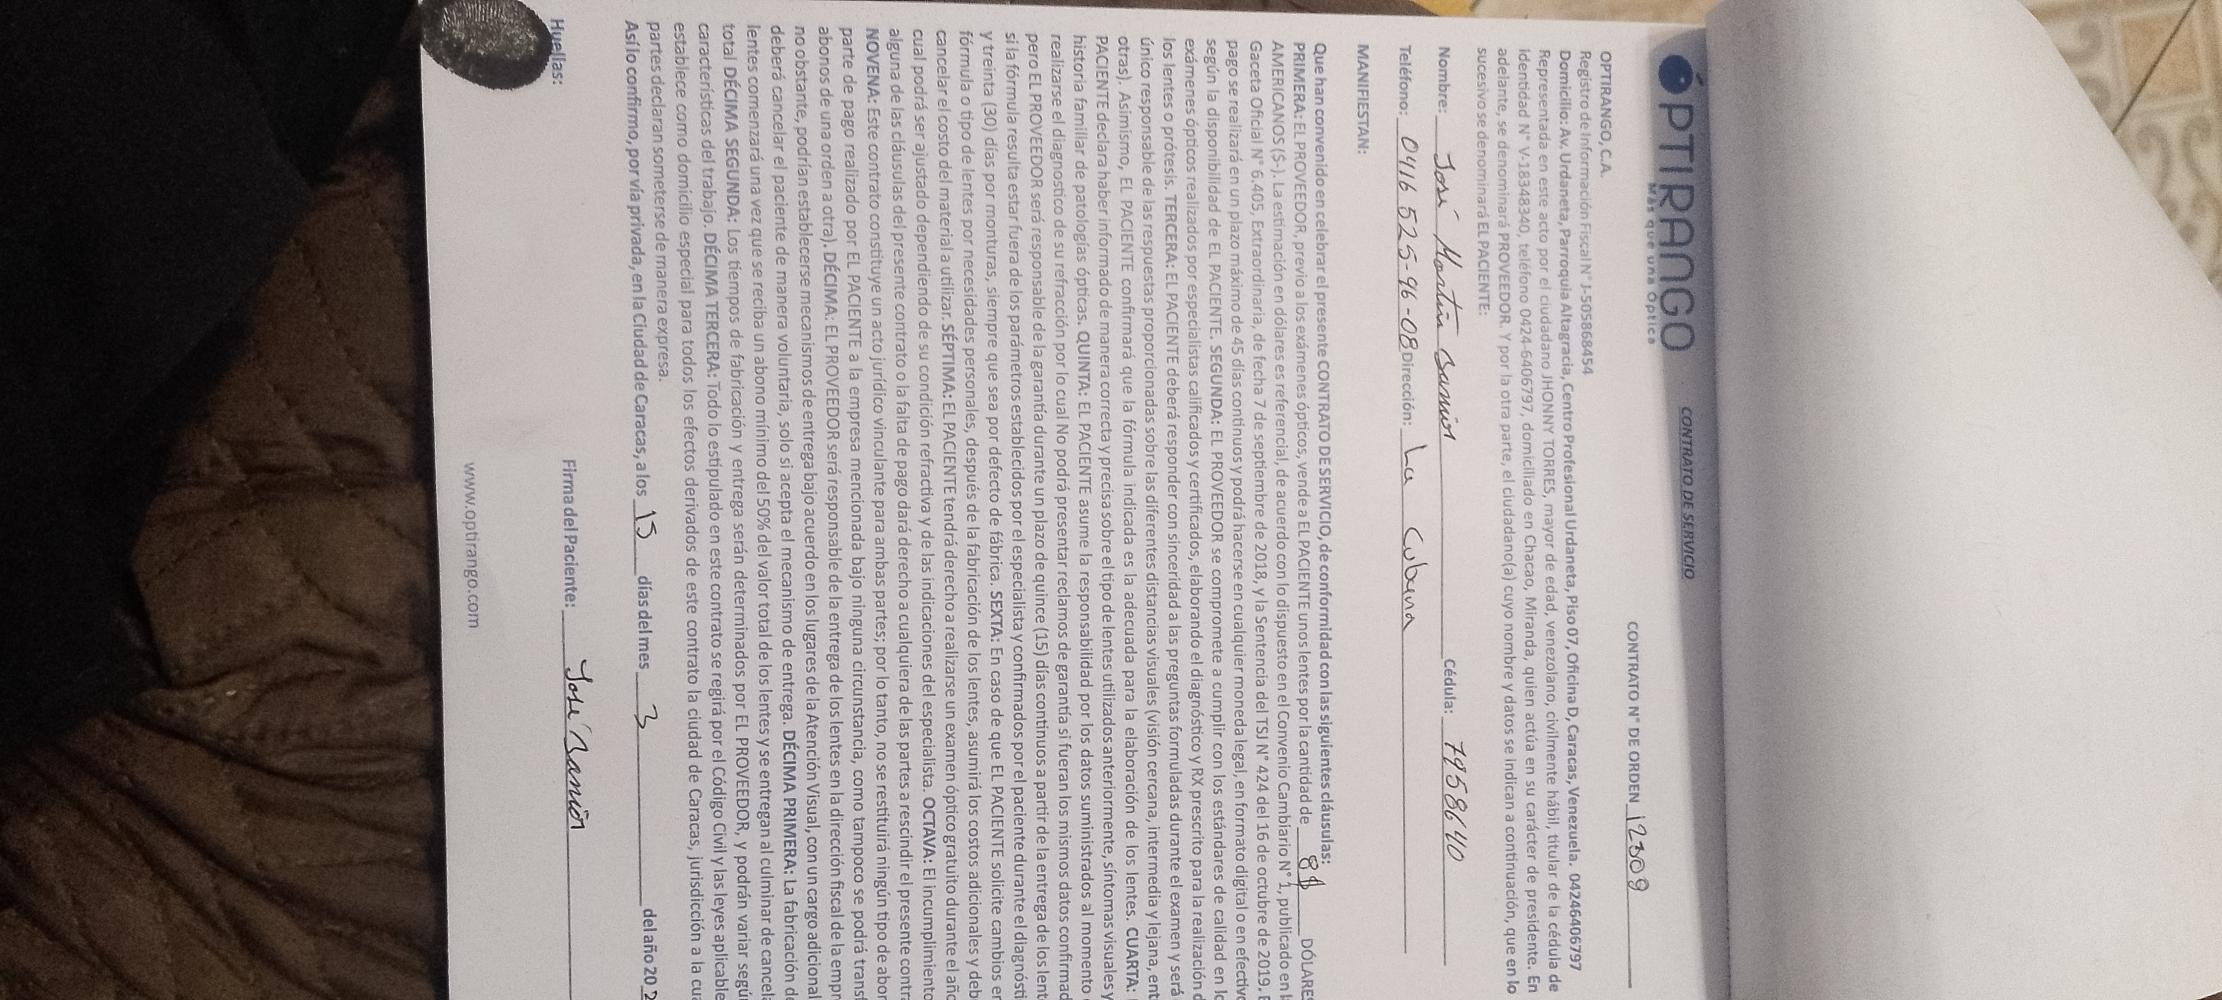 OPTIRANGO
Más que una Óptica
CONTRATO DE SERVICIO
CONTRATO N° DE ORDEN 12309
OPTIRANGO, C.A.
Registro de Información Fiscal N° J-505868454
Domicilio: Av. Urdaneta, Parroquia Altagracia, Centro Profesional Urdaneta, Piso 07, Oficina D, Caracas, Venezuela. 04246406797
Representada en este acto por el ciudadano JHONNY TORRES, mayor de edad, venezolano, civilmente hábil, titular de la cédula de
identidad N° V-18348340, teléfono 0424-6406797, domiciliado en Chacao, Miranda, quien actúa en su carácter de presidente. En
adelante, se denominará PROVEEDOR. Y por la otra parte, el ciudadano(a) cuyo nombre y datos se indican a continuación, que en lo
sucesivo se denominará EL PACIENTE:
Nombre: José Martin Cédula: 7958640
Teléfono: 0416 525-96-08 Dirección: La
MANIFIESTAN:
Que han convenido en celebrar el presente CONTRATO DE SERVICIO, de conformidad con las siguientes cláusulas:
PRIMERA: EL PROVEEDOR, previo a los exámenes ópticos, vende a EL PACIENTE unos lentes por la cantidad de 8$ DÓLARES
AMERICANOS ($-). La estimación en dólares es referencial, de acuerdo con lo dispuesto en el Convenio Cambiario N° 1, publicado en
Gaceta Oficial N° 6.405, Extraordinaria, de fecha 7 de septiembre de 2018, y la Sentencia del TSJ N° 424 del 16 de octubre de 2019,
pago se realizará en un plazo máximo de 45 días continuos y podrá hacerse en cualquier moneda legal, en formato digital o en efectivo
según la disponibilidad de EL PACIENTE. SEGUNDA: EL PROVEEDOR se compromete a cumplir con los estándares de calidad en
exámenes ópticos realizados por especialistas calificados y certificados, elaborando el diagnóstico y RX prescrito para la realización
los lentes o prótesis. TERCERA: EL PACIENTE deberá responder con sinceridad a las preguntas formuladas durante el examen y será
único responsable de las respuestas proporcionadas sobre las diferentes distancias visuales (visión cercana, intermedia y lejana, ent
otras). Asimismo, EL PACIENTE confirmará que la fórmula indicada es la adecuada para la elaboración de los lentes. CUARTA:
PACIENTE declara haber informado de manera correcta y precisa sobre el tipo de lentes utilizados anteriormente, síntomas visuales y
historia familiar de patologías ópticas. QUINTA: EL PACIENTE asume la responsabilidad por los datos suministrados al momento
realizarse el diagnostico de su refracción por lo cual No podrá presentar reclamos de garantía si fueran los mismos datos confirmad
pero EL PROVEEDOR será responsable de la garantía durante un plazo de quince (15) días continuos a partir de la entrega de los lent
si la fórmula resulta estar fuera de los parámetros establecidos por el especialista y confirmados por el paciente durante el diagnósti
y treinta (30) días por monturas, siempre que sea por defecto de fábrica. SEXTA: En caso de que EL PACIENTE solicite cambios en
fórmula o tipo de lentes por necesidades personales, después de la fabricación de los lentes, asumirá los costos adicionales y deb
cancelar el costo del material a utilizar. SÉPTIMA: EL PACIENTE tendrá derecho a realizarse un examen óptico gratuito durante el año
cual podrá ser ajustado dependiendo de su condición refractiva y de las indicaciones del especialista. OCTAVA: El incumplimiento
alguna de las cláusulas del presente contrato o la falta de pago dará derecho a cualquiera de las partes a rescindir el presente contra
NOVENA: Este contrato constituye un acto jurídico vinculante para ambas partes; por lo tanto, no se restituirá ningún tipo de abon
parte de pago realizado por EL PACIENTE a la empresa mencionada bajo ninguna circunstancia, como tampoco se podrá transf
abonos de una orden a otra). DÉCIMA: EL PROVEEDOR será responsable de la entrega de los lentes en la dirección fiscal de la empr
no obstante, podrían establecerse mecanismos de entrega bajo acuerdo en los lugares de la Atención Visual, con un cargo adicional
deberá cancelar el paciente de manera voluntaria, solo si acepta el mecanismo de entrega. DÉCIMA PRIMERA: La fabricación de
lentes comenzará una vez que se reciba un abono mínimo del 50% del valor total de los lentes y se entregan al culminar de cancela
total DÉCIMA SEGUNDA: Los tiempos de fabricación y entrega serán determinados por EL PROVEEDOR, y podrán variar según
características del trabajo). DÉCIMA TERCERA: Todo lo estipulado en este contrato se regirá por el Código Civil y las leyes aplicable
establece como domicilio especial para todos los efectos derivados de este contrato la ciudad de Caracas, jurisdicción a la cua
partes declaran someterse de manera expresa.
Así lo confirmo, por vía privada, en la Ciudad de Caracas, a los 15 días del mes 3 del año 202
Huellas:
Firma del Paciente: José
www.optirango.com